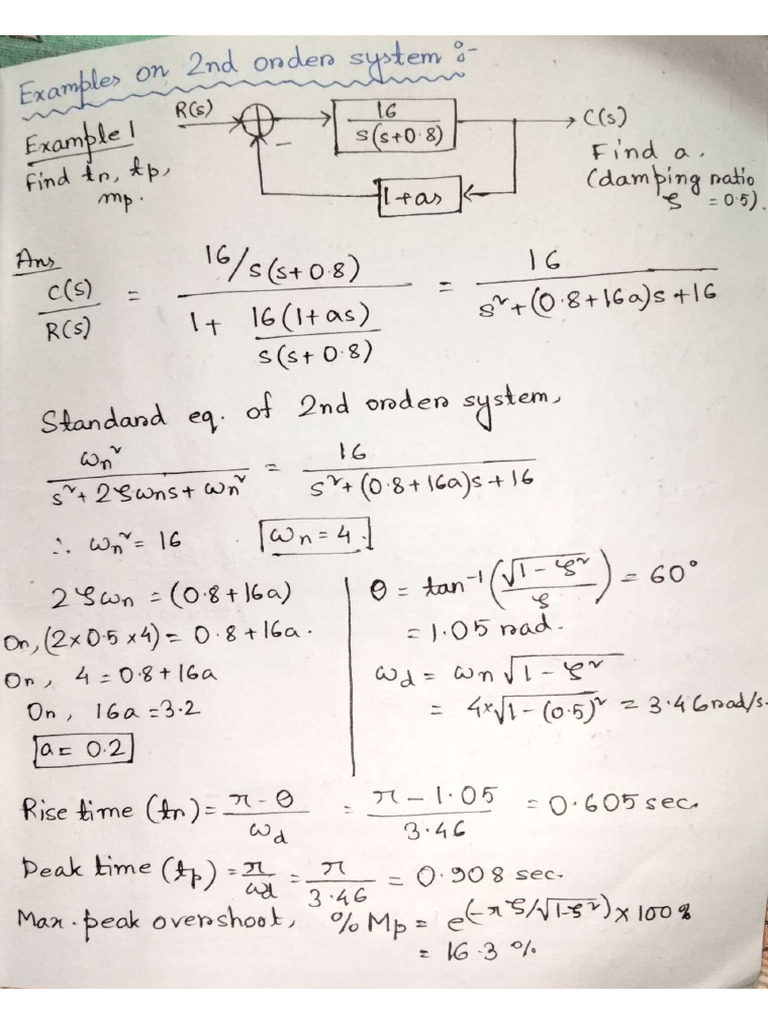 Examples on 2nd order system :-
Example 1
Find tr, tp, mp.
R(s)
16 / s(s+0.8)
C(s)
−
1+as
Find a.
(damping ratio
ξ = 0.5).
Ans
C(s)/R(s) = (16/s(s+0.8)) / (1 + 16(1+as)/s(s+0.8)) = 16 / (s²+(0.8+16a)s+16)
Standard eq. of 2nd order system,
ωn² / (s²+2ξωns+ωn²) = 16 / (s²+(0.8+16a)s+16)
∴ ωn² = 16 ωn = 4.
2ξωn = (0.8+16a)
Or, (2×0.5×4) = 0.8+16a.
Or, 4 = 0.8+16a
Or, 16a = 3.2
a = 0.2
θ = tan⁻¹(√1-ξ² / ξ) = 60°
= 1.05 rad.
ωd = ωn √1-ξ²
= 4×√1-(0.5)² = 3.46 rad/s.
Rise time (tr) = (π-θ)/ωd = (π-1.05)/3.46 = 0.605 sec.
Peak time (tp) = π/ωd = π/3.46 = 0.908 sec.
Max. peak overshoot, %Mp = e^(-πξ/√1-ξ²) × 100%
= 16.3 %